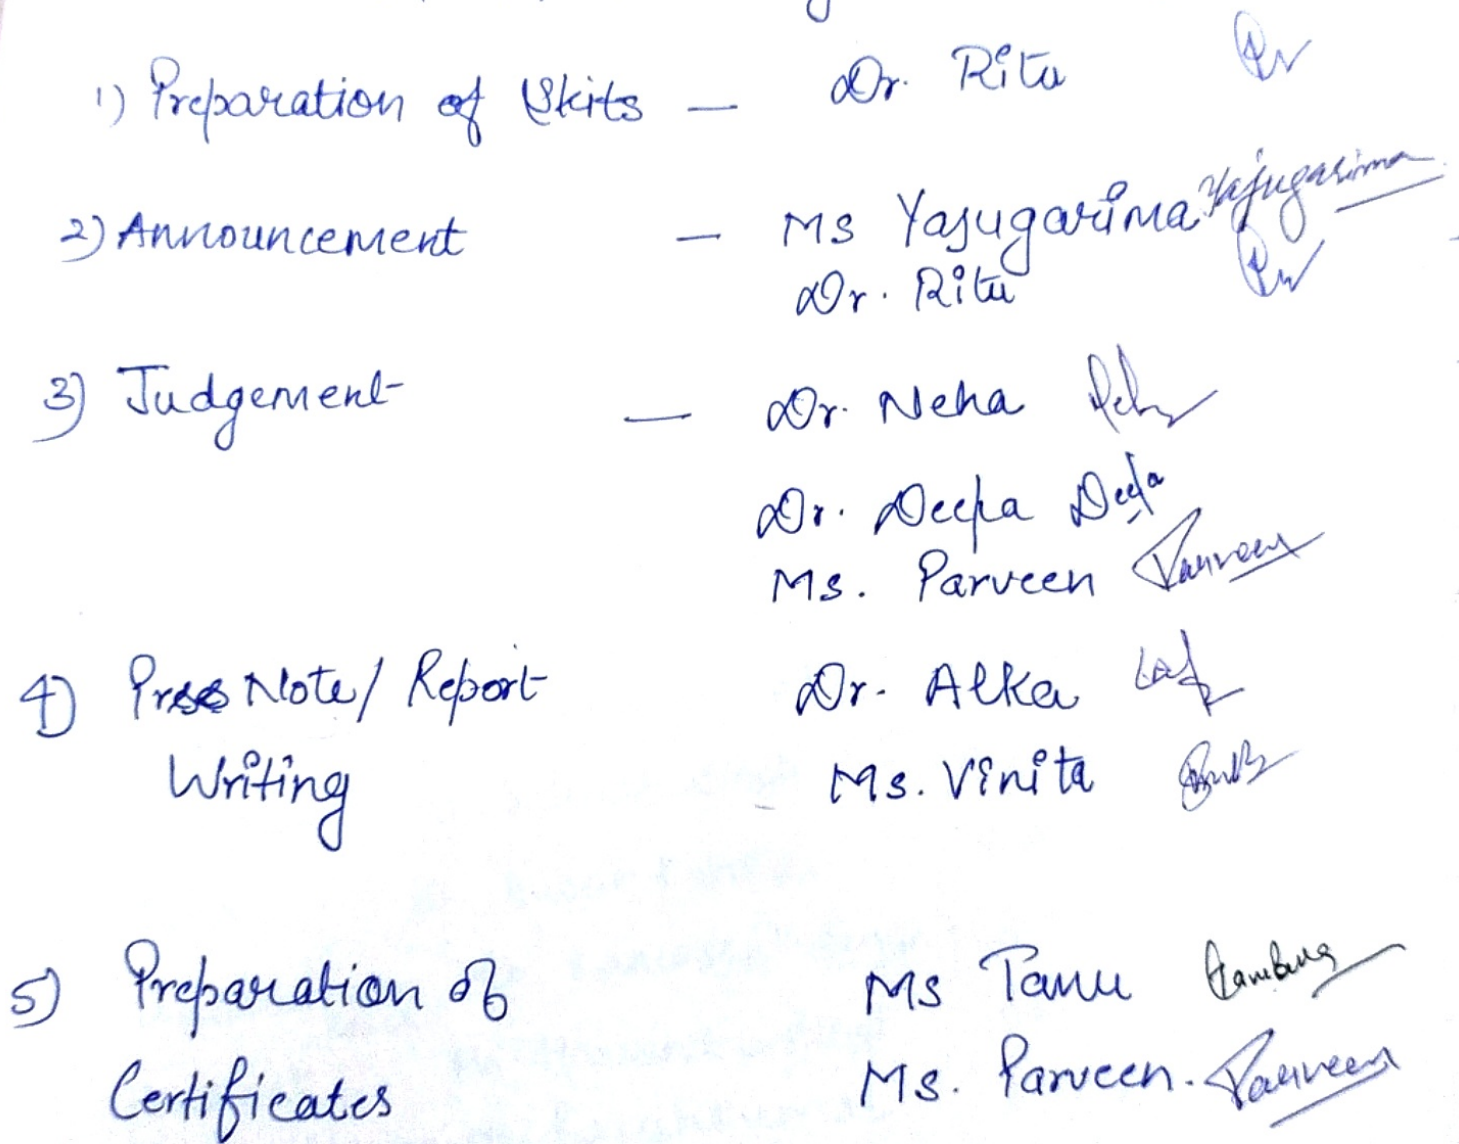 1) Preparation of Skits — Dr. Ritu
2) Announcement — Ms Yajugarima Yajugarima
Dr. Ritu
3) Judgement — Dr. Neha
Dr. Deepa Deepa
Ms. Parveen Parveen
4) Press Note/ Report Dr. Alka
Writing Ms. Vinita
5) Preparation of Ms Tanu
Certificates Ms. Parveen. Parveen